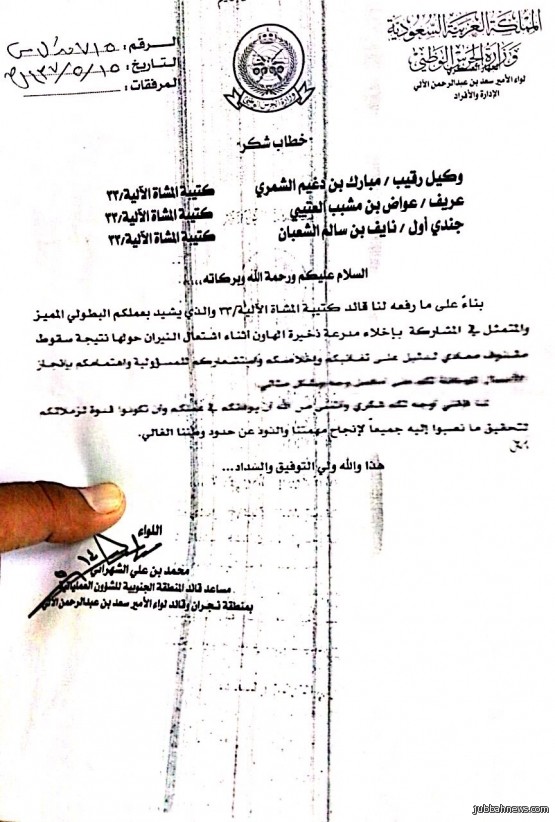 المملكة العربية السعودية
وزارة الحرس الوطني
لواء الأمير سعد بن عبدالرحمن الآلي
الإدارة والأفراد
الرقم:
التاريخ: ١٤٣٧/٥/١٥هـ
المرفقات:
"خطاب شكر"
وكيل رقيب / مبارك بن دغيم الشمري كتيبة المشاة الآلية/٣٣
عريف / عواض بن مشبب العتيبي كتيبة المشاة الآلية/٣٣
جندي أول / نايف بن سالم الشعبان كتيبة المشاة الآلية/٣٣
السلام عليكم ورحمة الله وبركاته....
بناءً على ما رفعه لنا قائد كتيبة المشاة الآلية/٣٣ والذي يشيد بعملكم البطولي المميز
والمتمثل في المشاركة بإخلاء مدرعة ذخيرة الهاون أثناء اشتعال النيران حولها نتيجة سقوط
مقذوف معادي على تفانيكم وإخلاصكم واستشعاركم للمسؤولية واهتمامكم بإنجاز
لذا فإنني أوجه لكم شكري وأتمنى من الله أن يوفقكم في عملكم وأن تكونوا قدوة لزملائكم
لتحقيق ما نصبوا إليه جميعاً لإنجاح مهمتنا والذود عن حدود وطننا الغالي.
هذا والله ولي التوفيق والسداد...
اللواء
محمد بن علي الشهراني
مساعد قائد المنطقة الجنوبية للشؤون العملياتية
بمنطقة نجران وقائد لواء الأمير سعد بن عبدالرحمن الآلي
jubbahnews.com